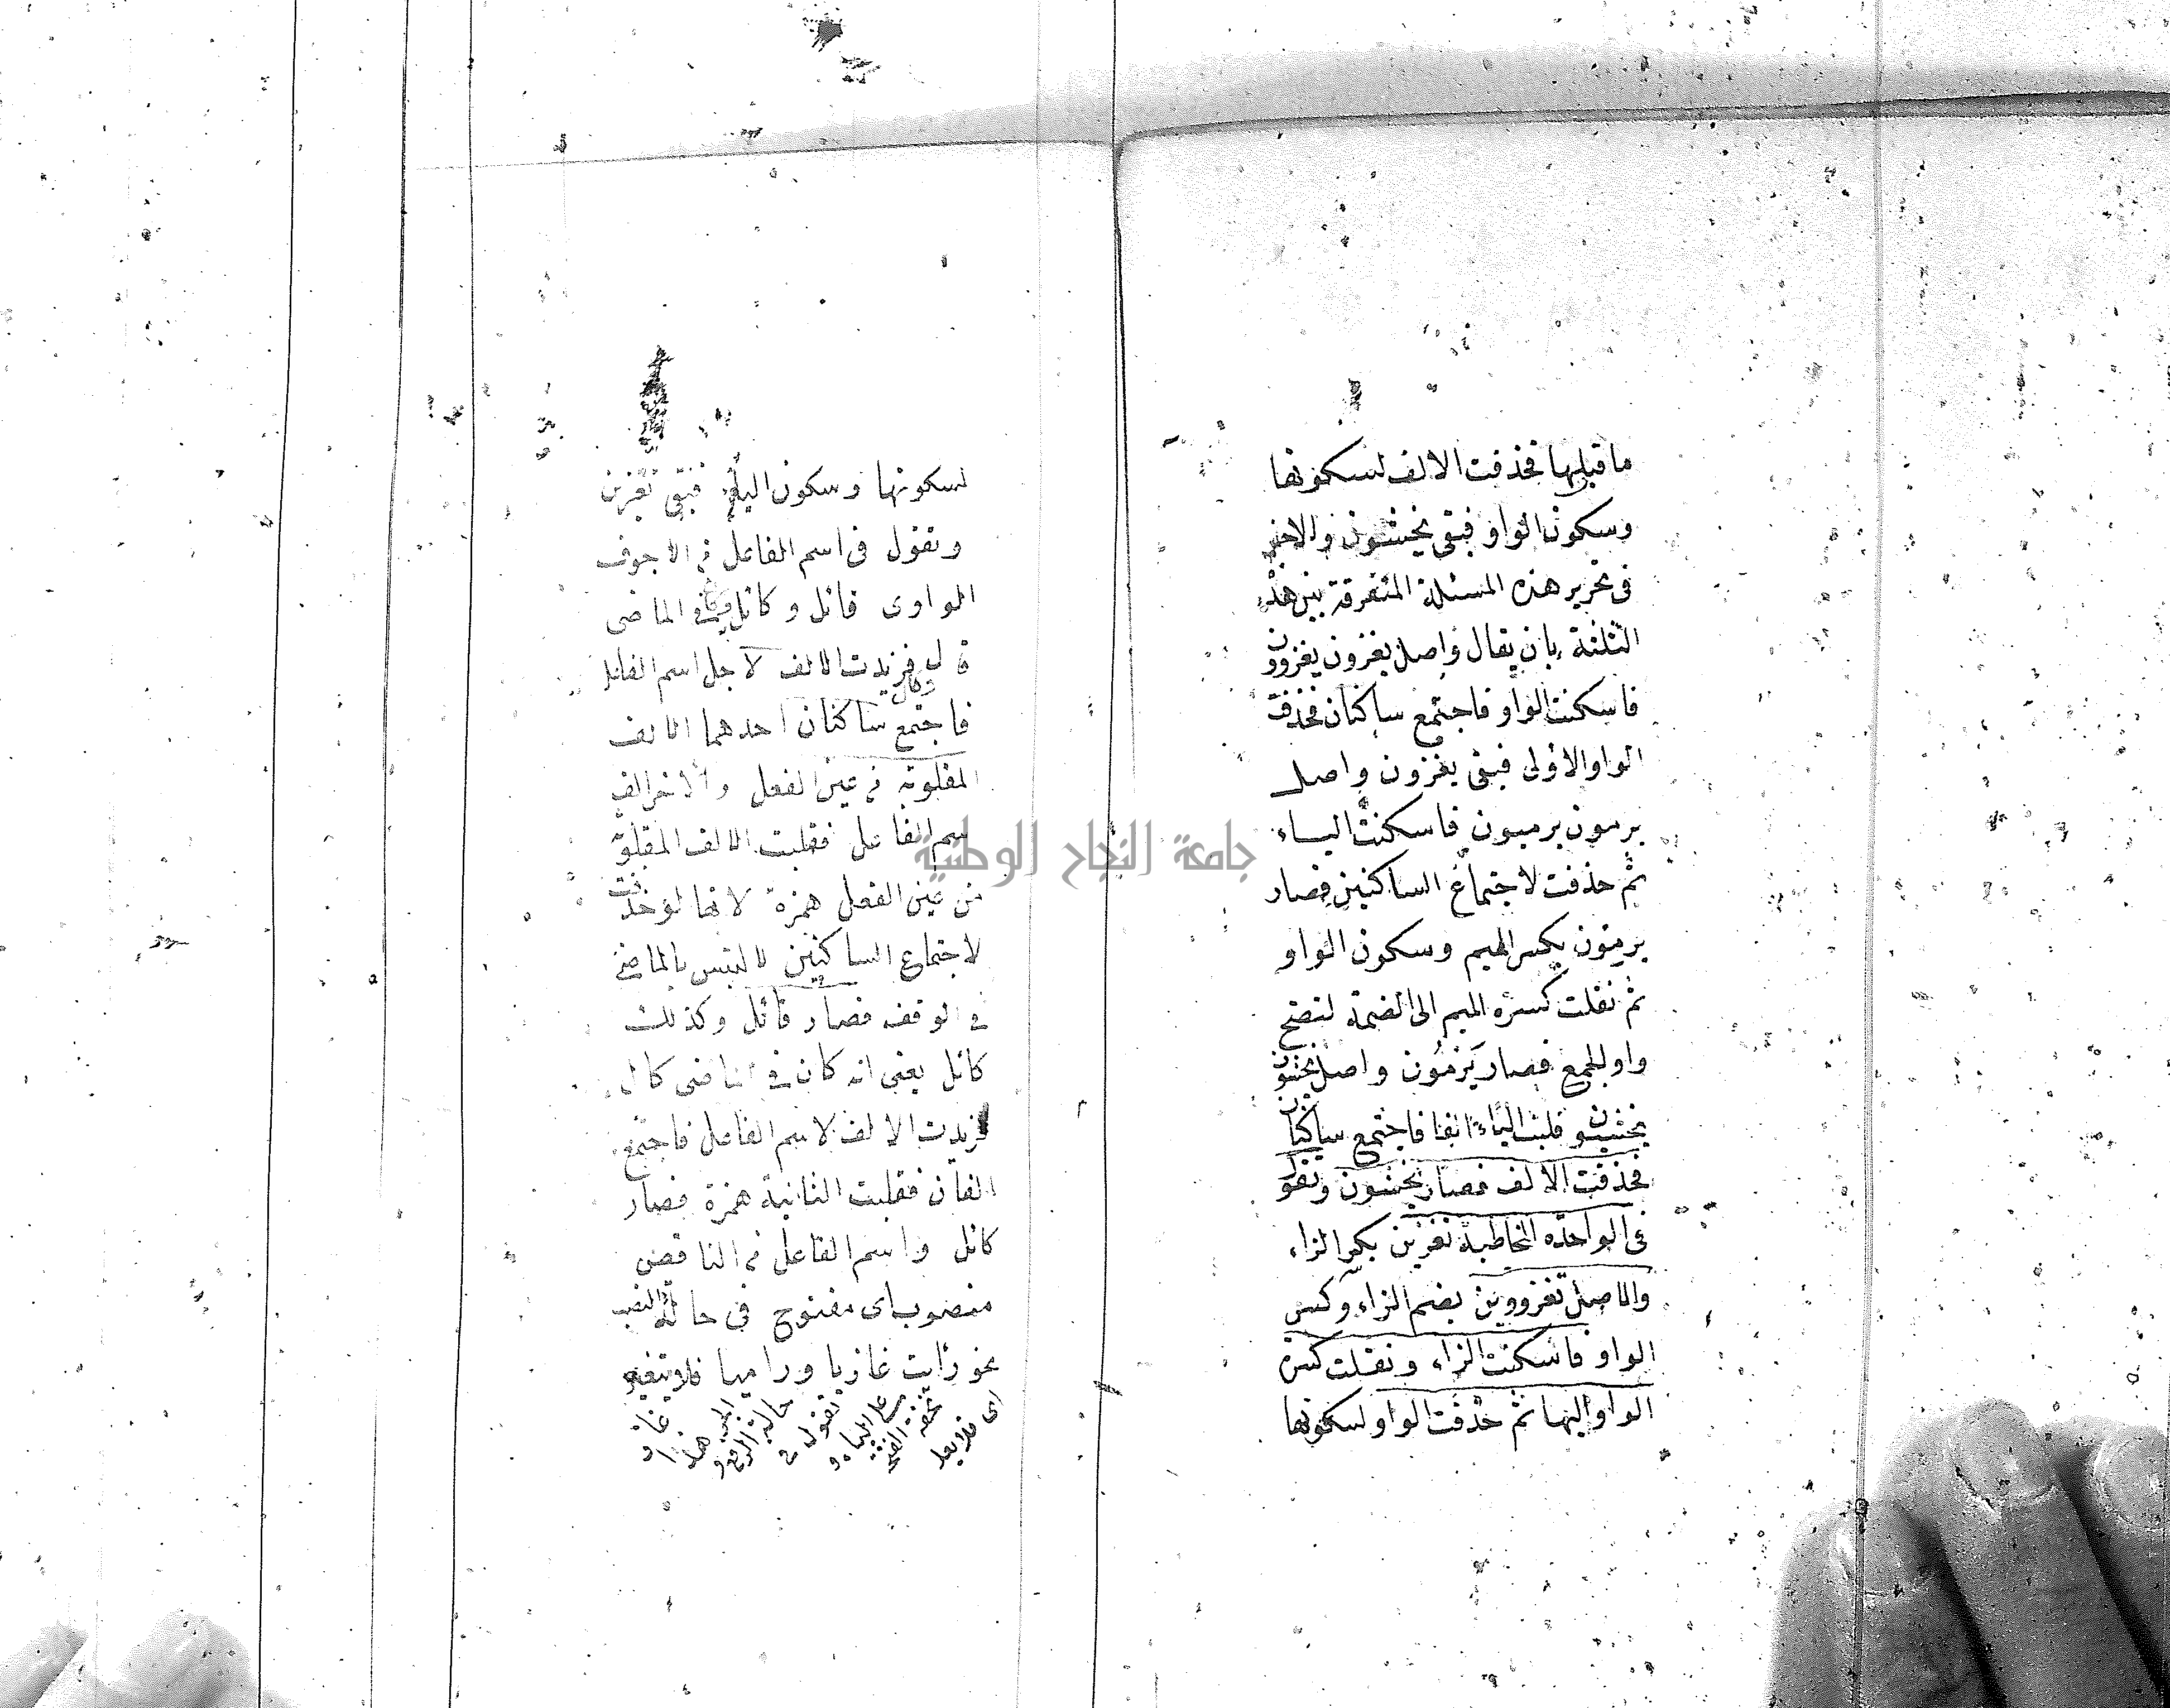 ما قبلها فحذفت الالف لسكونها
وسكون الواو فبقى يخشون والاخر
فى تحرير هذه المسئلة المتفرقة بين هذه
الثلثة بان يقال واصل يغزون يغزوون
فاسكنت الواو فاجتمع ساكنان فحذفت
الواو الاولى فبقى يغزون واصل
يرمون يرميون فاسكنت الياء
ثم حذفت لاجتماع الساكنين فصار
يرمون بكسر الميم وسكون الواو
ثم نقلت كسرة الميم الى الضمة لتصح
واو الجمع فصار يَرْمُون واصل يخشون
يخشيون قلبت الياء الفا فاجتمع ساكنان
فحذفت الالف فصار يخشون وتقول
فى الواحدة المخاطبة تغزين بكسر الزاء
والاصل تغزوين بضم الزاء وكسر
الواو فاسكنت الزاء ونقلت كسرة
الواو اليها ثم حذفت الواو لسكونها
لسكونها وسكون الياء فبقى تغزين
وتقول فى اسم الفاعل من الاجوف
الواوى قائل وكائل والماضى
قال وكال فزيدت الالف لاجل اسم الفاعل
فاجتمع ساكنان احدهما الالف
المقلوبة من عين الفعل والاخر الف
اسم الفاعل فقلبت الالف المقلوبة
من عين الفعل همزة لانها لو حذفت
لاجتماع الساكنين لالتبس بالماضى
فى الوقف فصار قائل وكذلك
كائل يعنى انه كان فى الماضى كال
فزيدت الالف لاسم الفاعل فاجتمع
الفان فقلبت الثانية همزة فصار
كائل واسم الفاعل من الناقص
منصوب اى مفتوح فى حالة النصب
نحو رأيت غازيا وراميا فلا يتغير
جامعة النجاح الوطنية